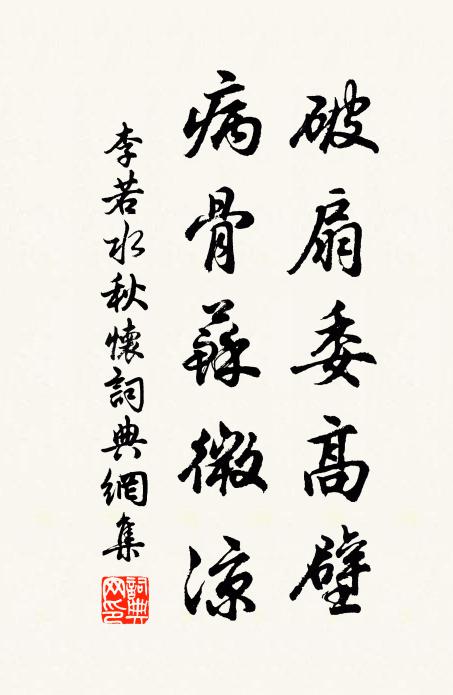 破扇委高壁
病骨蘇微涼
李若水秋懷詞典網集
詞典网印